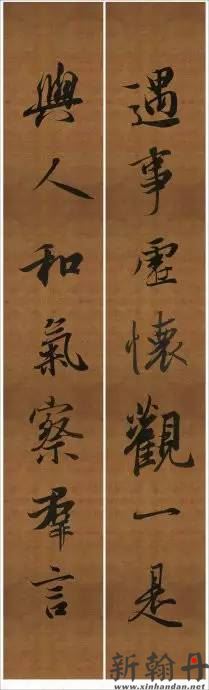 遇事虛懷觀一是
與人和氣察羣言
新翰丹
www.xinhandan.net